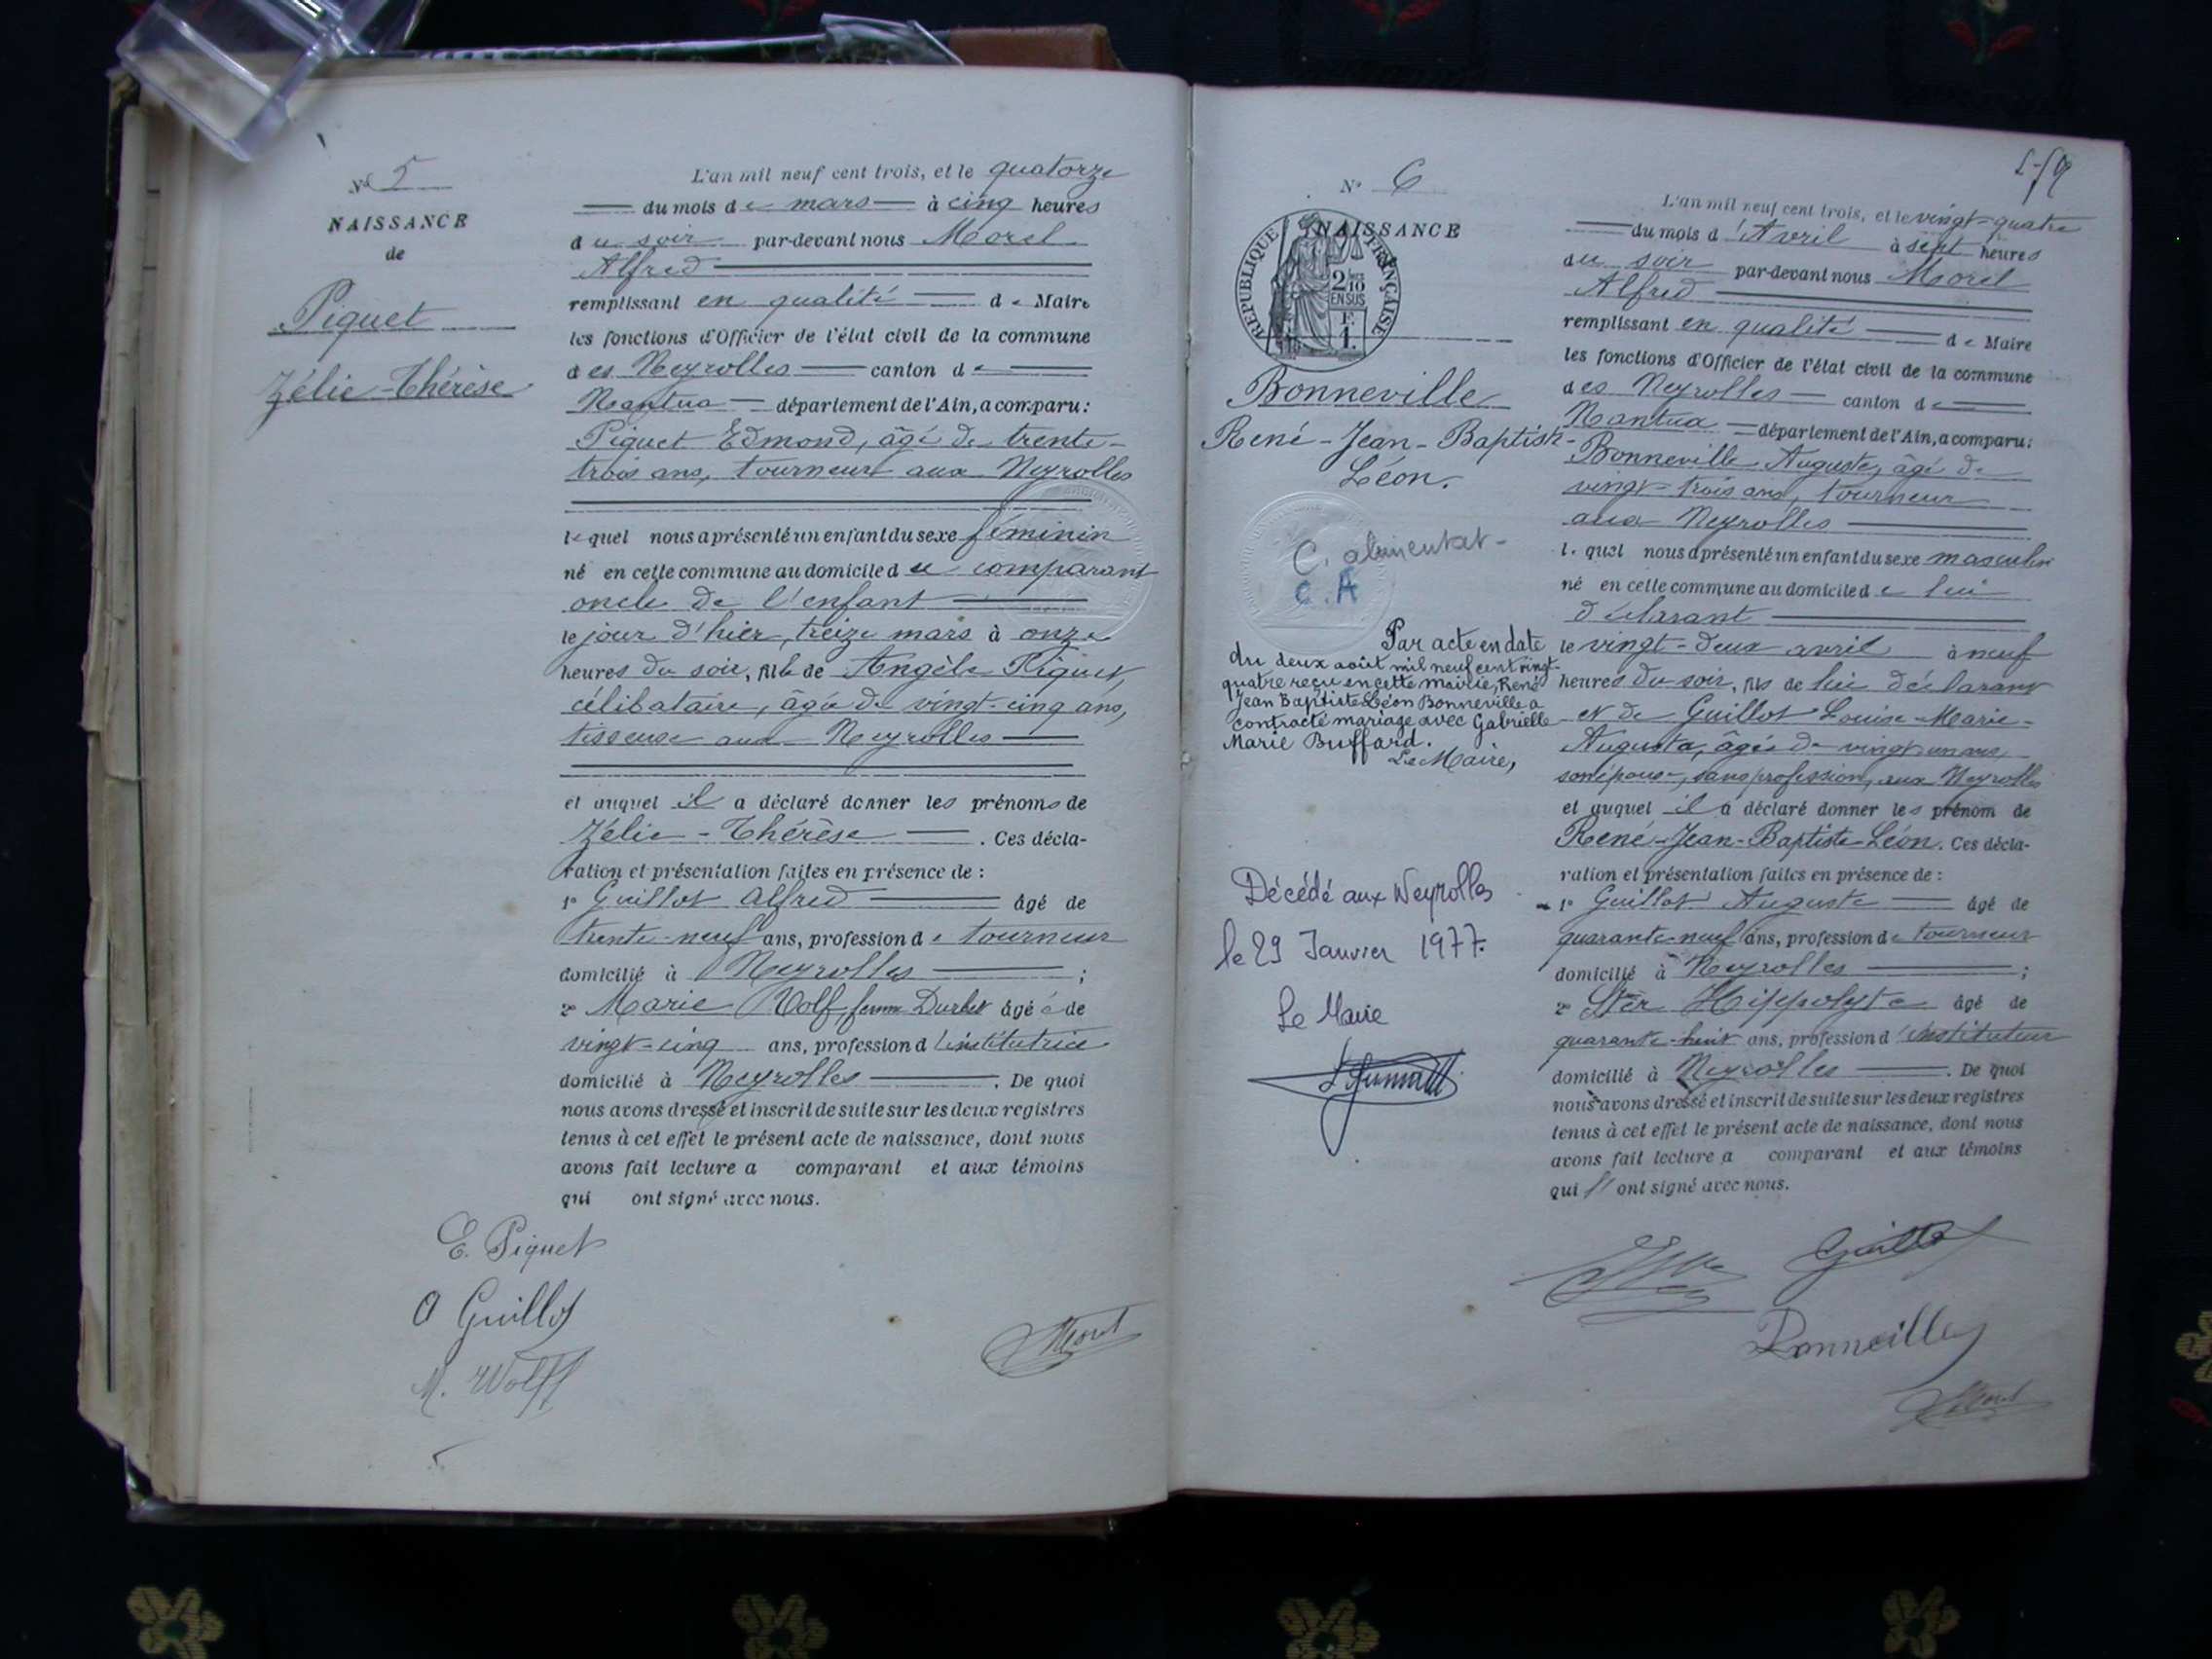 N° 5
NAISSANCE
de
Piquet
Zélie-Thérèse
L'an mil neuf cent trois, et le quatorze
du mois de mars à cinq heures
du soir par-devant nous Morel
Alfred
remplissant en qualité de Maire
les fonctions d'Officier de l'état civil de la commune
des Neyrolles canton de
Nantua département de l'Ain, a comparu:
Piquet Edmond, âgé de trente-
trois ans, tourneur aux Neyrolles
lequel nous a présenté un enfant du sexe féminin
né en cette commune au domicile du comparant
oncle de l'enfant
le jour d'hier, treize mars à onze
heures du soir, fille de Angèle Piquet,
célibataire, âgée de vingt-cinq ans,
tisseuse aux Neyrolles
et auquel il a déclaré donner les prénoms de
Zélie-Thérèse. Ces décla-
ration et présentation faites en présence de :
1° Guillot Alfred âgé de
trente-neuf ans, profession de tourneur
domicilié à Neyrolles ;
2° Marie Wolf, femme Durlet âgée de
vingt-cinq ans, profession d'institutrice
domicilié à Neyrolles. De quoi
nous avons dressé et inscrit de suite sur les deux registres
tenus à cet effet le présent acte de naissance, dont nous
avons fait lecture a comparant et aux témoins
qui ont signé avec nous.
E. Piquet
A Guillot
M. Wolff
Morel
N° 6
NAISSANCE
RÉPUBLIQUE FRANÇAISE
2/10
EN SUS
F.
1.
Bonneville
René-Jean-Baptiste-
Léon.
C. alimentat-
C.A
Par acte en date
du deux août mil neuf cent vingt-
quatre reçu en cette mairie, René
Jean Baptiste Léon Bonneville a
contracté mariage avec Gabrielle
Marie Buffard.
Le Maire,
Décédé aux Neyrolles
le 29 Janvier 1977.
Le Maire
L'an mil neuf cent trois, et le vingt-quatre
du mois d'Avril à sept heures
du soir par-devant nous Morel
Alfred
remplissant en qualité de Maire
les fonctions d'Officier de l'état civil de la commune
des Neyrolles canton de
Nantua département de l'Ain, a comparu:
Bonneville Auguste, âgé de
vingt-trois ans, tourneur
aux Neyrolles
lequel nous a présenté un enfant du sexe masculin
né en cette commune au domicile de lui
déclarant
le vingt-deux avril à neuf
heures du soir, fils de lui déclarant
et de Guillot Louise-Marie-
Augusta, âgée de vingt un ans,
son épouse, sans profession, aux Neyrolles
et auquel il a déclaré donner les prénom de
René-Jean-Baptiste-Léon. Ces décla-
ration et présentation faites en présence de :
1° Guillot Auguste âgé de
quarante-neuf ans, profession de tourneur
domicilié à Neyrolles ;
2° Hippolyte âgé de
quarante-huit ans, profession d'instituteur
domicilié à Neyrolles. De quoi
nous avons dressé et inscrit de suite sur les deux registres
tenus à cet effet le présent acte de naissance, dont nous
avons fait lecture a comparant et aux témoins
qui ont signé avec nous.
Guillot
Bonneville
Morel